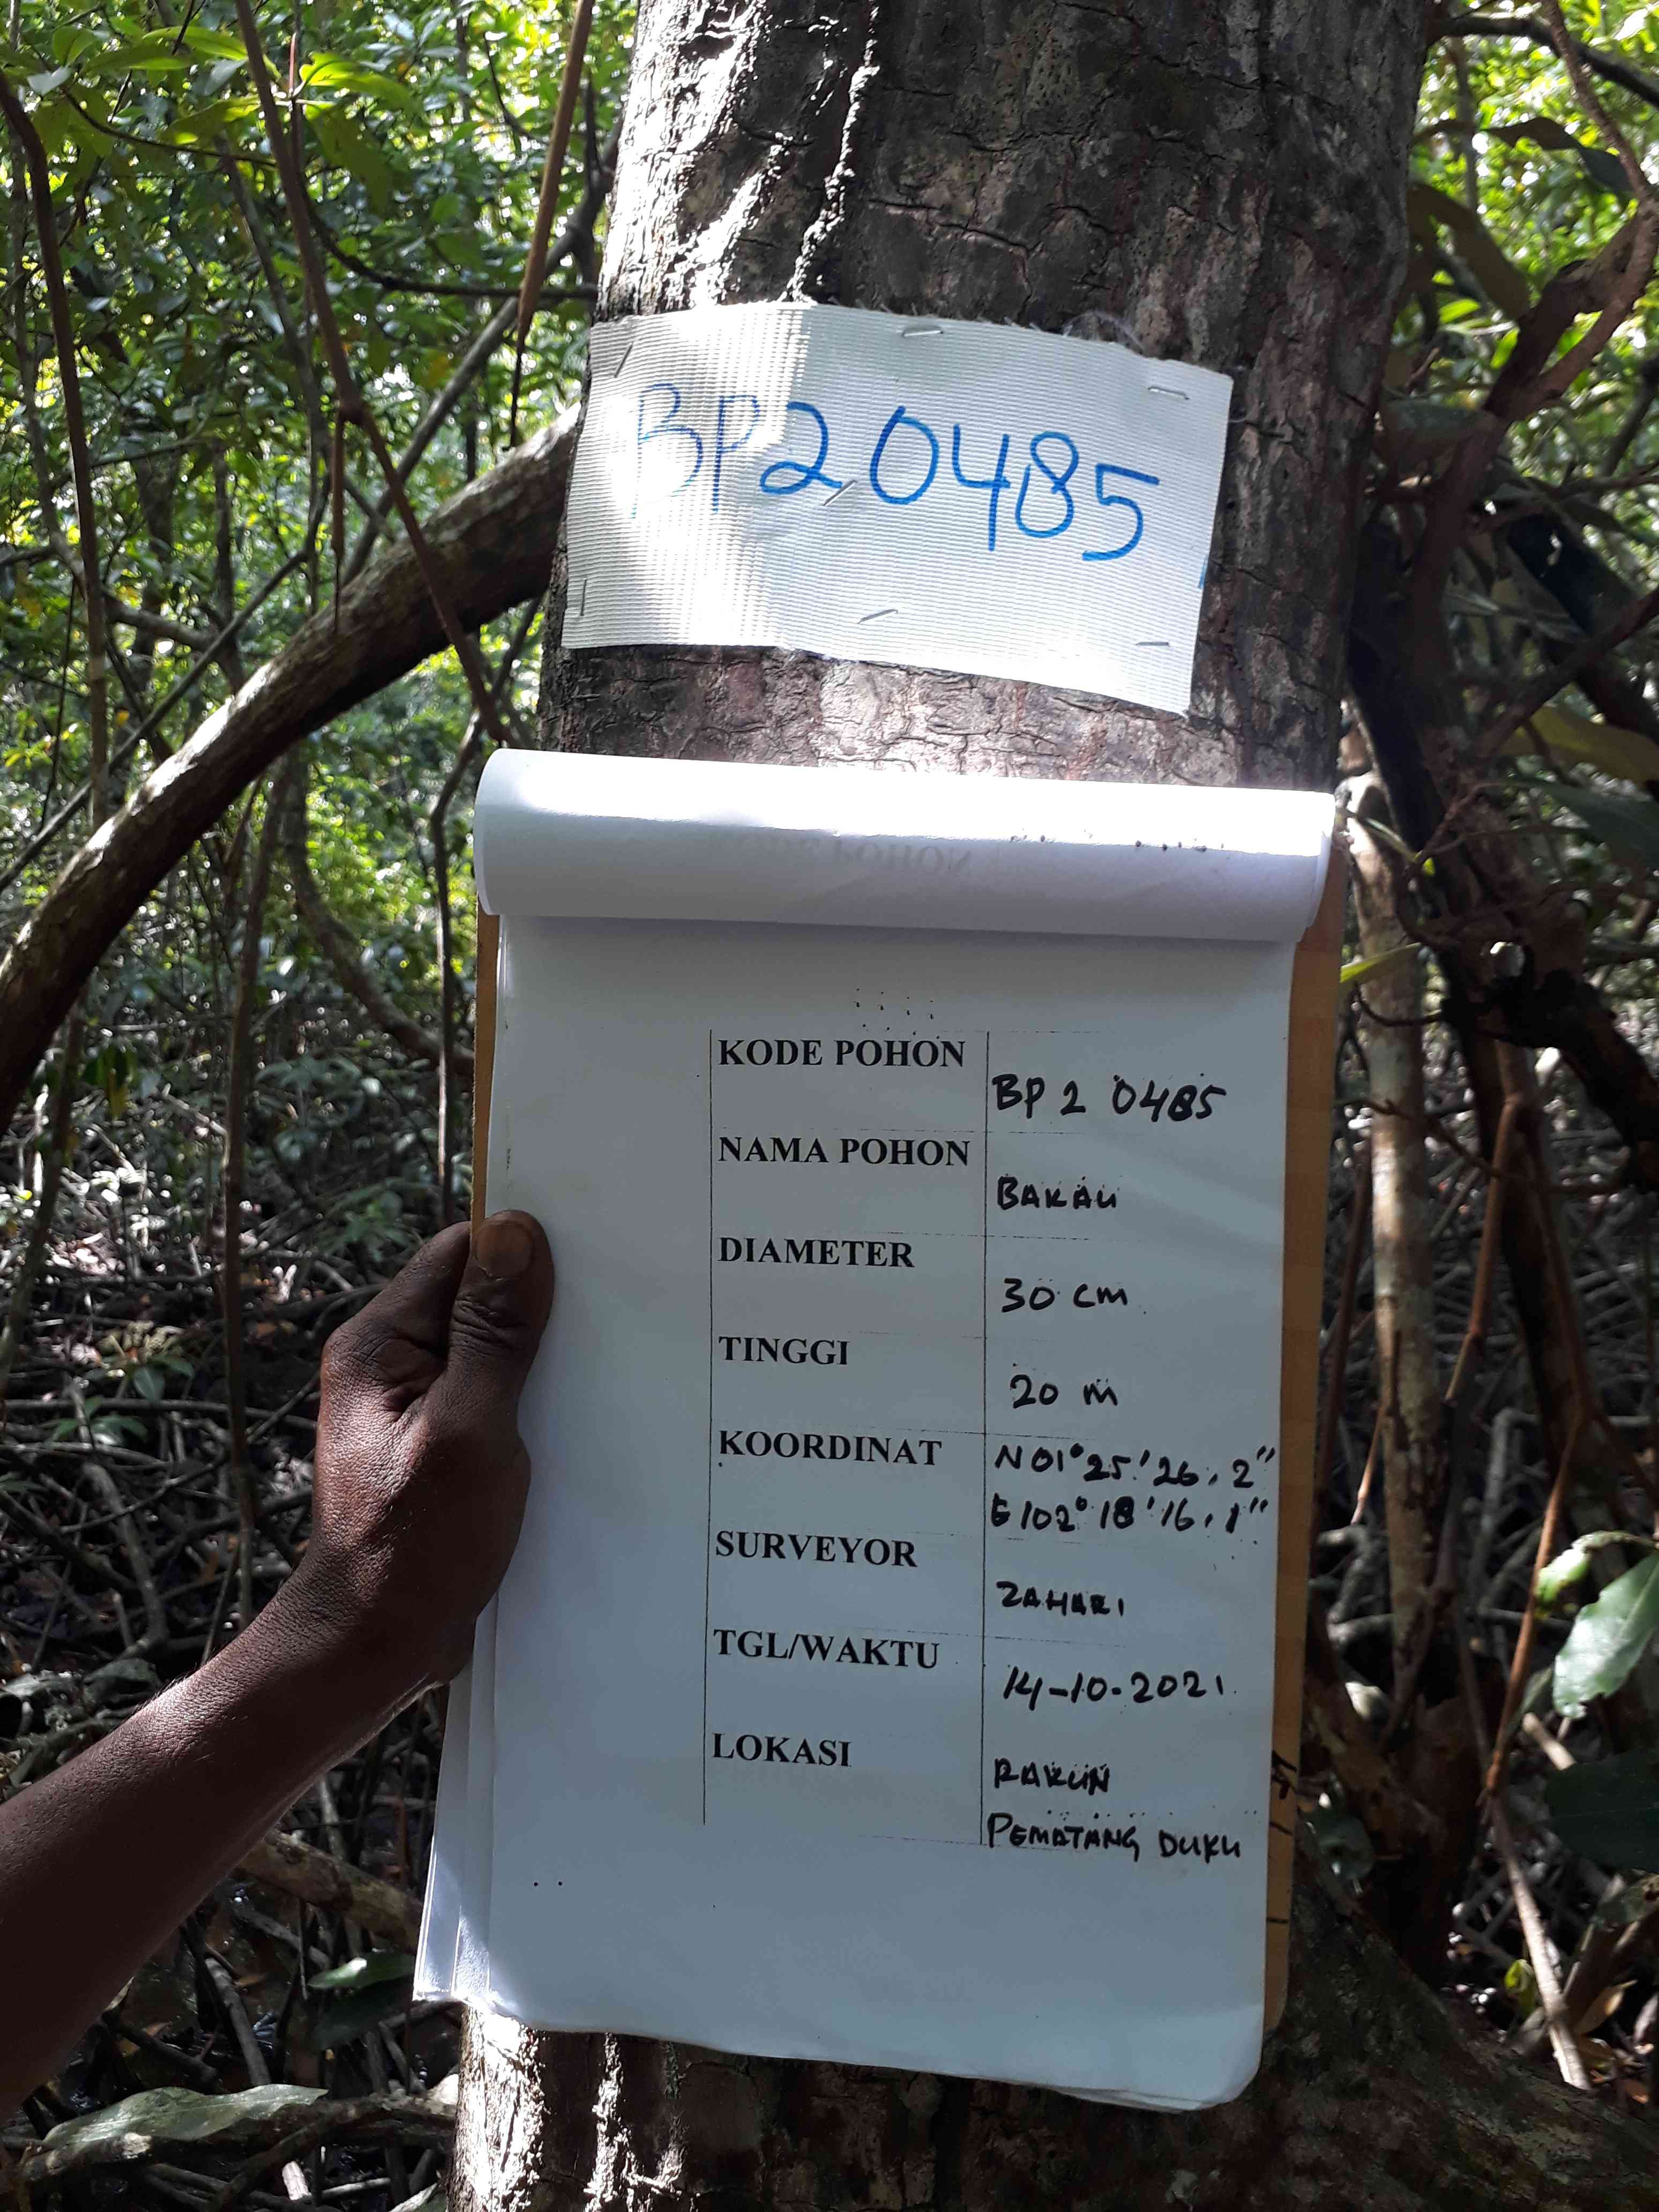 BP20485
KODE POHON
BP 2 0485
NAMA POHON
BAKAU
DIAMETER
30 cm
TINGGI
20 m
KOORDINAT
N 01° 25' 26, 2"
E 102° 18' 16, 1"
SURVEYOR
ZAHARI
TGL/WAKTU
14-10-2021
LOKASI
RAKUN
PEMATANG DUKU